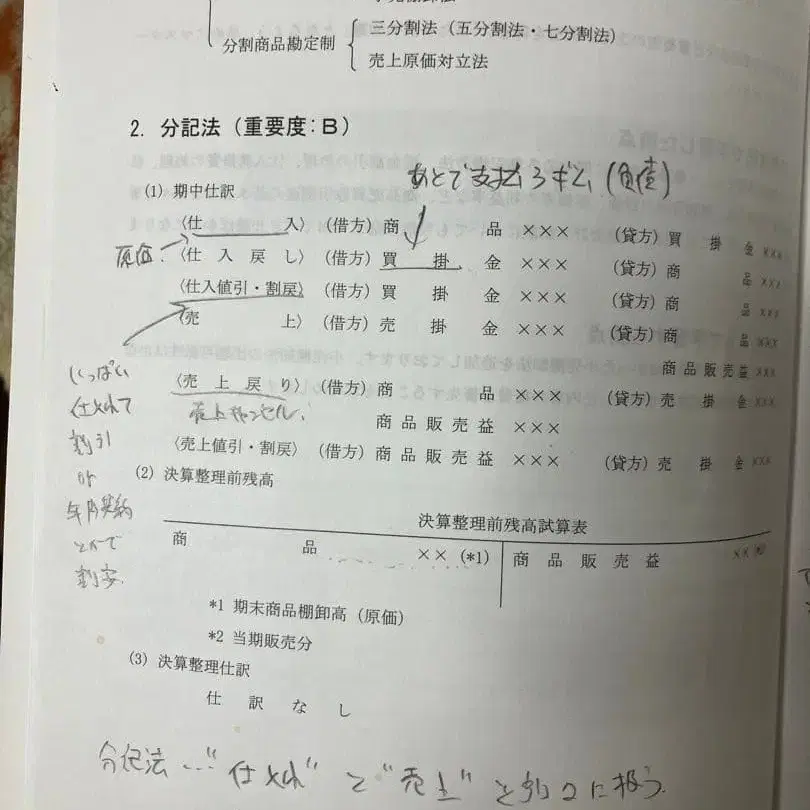 分割商品勘定制
三分割法（五分割法・七分割法）
売上原価対立法
2. 分記法（重要度：B）
あとで支払うギム（負債）
(1) 期中仕訳
〈仕 入〉（借方）商 品 ××× （貸方）買 掛 金 ×××
原価
〈仕 入 戻 し〉（借方）買 掛 金 ××× （貸方）商 品 ×××
〈仕入値引・割戻〉（借方）買 掛 金 ××× （貸方）商 品 ×××
〈売 上〉（借方）売 掛 金 ××× （貸方）商 品 ×××
商品販売益 ×××
〈売 上 戻 り〉（借方）商 品 ××× （貸方）売 掛 金 ×××
売上キャンセル
商品販売益 ×××
〈売上値引・割戻〉（借方）商品販売益 ××× （貸方）売 掛 金 ×××
いっぱい
仕入れて
割引
or
とかで
割安
(2) 決算整理前残高
決算整理前残高試算表
商 品 ×× (*1) 商 品 販 売 益 ××
*1 期末商品棚卸高（原価）
*2 当期販売分
(3) 決算整理仕訳
仕 訳 な し
分記法…"仕入れ"と"売上"を別々に扱う